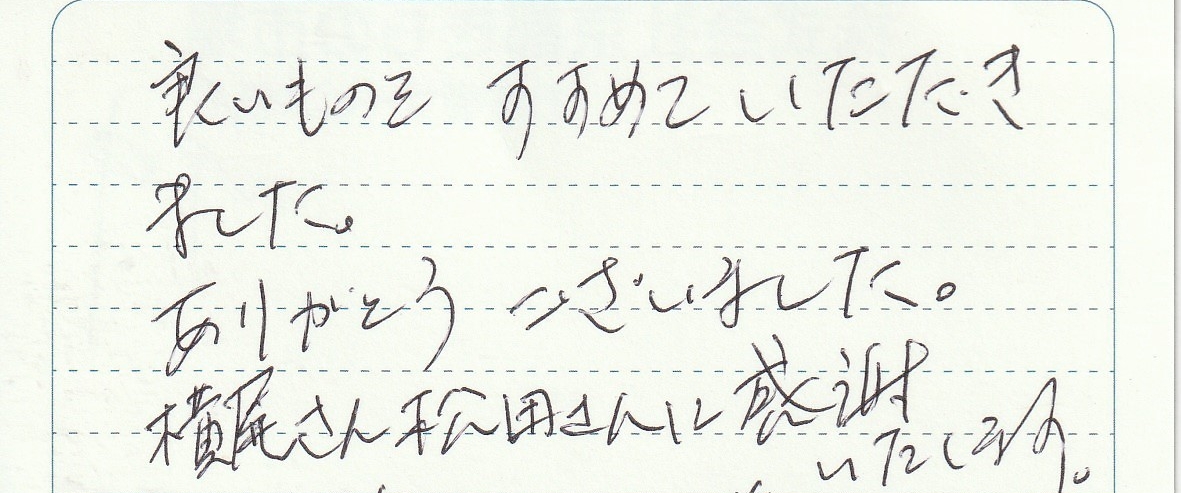 良いものを すすめていただき
ました。
ありがとう ございました。
横尾さん松田さんに感謝
いたします。